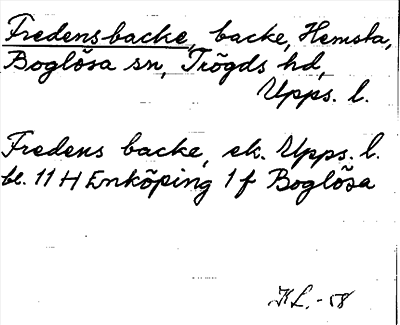 Fredensbacke, backe, Hemsta,
Boglösa sn, Trögds hd,
Upps. l.
Fredens backe, ek. Upps. l.
bl. 11 H Enköping 1 f Boglösa
-58